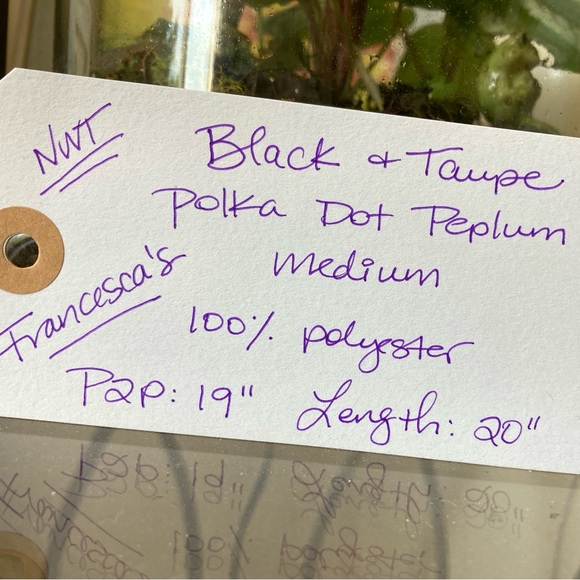 NWT
Black + Taupe
Polka Dot Peplum
Medium
Francesca's
100% polyester
P2P: 19" Length: 20"